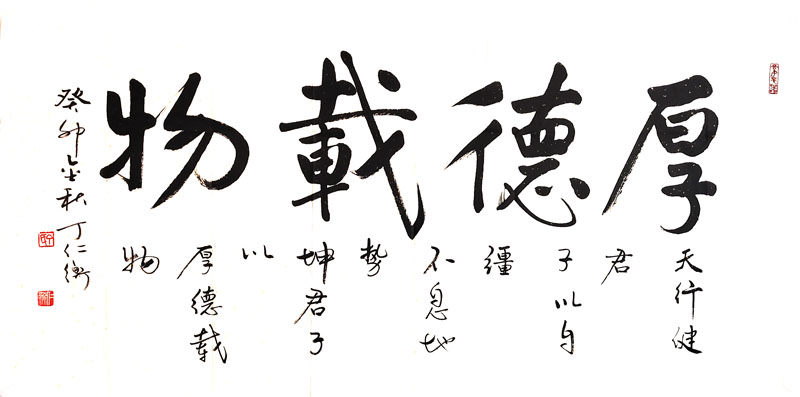 厚德載物
天行健
君
子以自
彊
不息地
勢
坤君子
以
厚德載
物
癸卯金秋丁仁衡